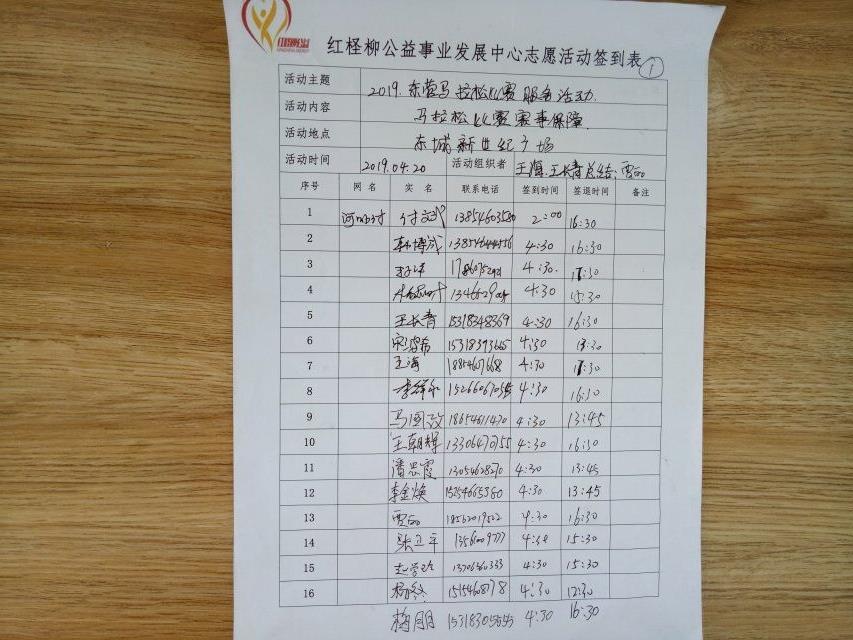 红柽柳公益事业发展中心志愿活动签到表 1
活动主题 2019.东营马拉松比赛服务活动.
活动内容 马拉松比赛赛事保障
活动地点 东城新世纪广场
活动时间 2019.04.20 活动组织者 王海.王长青总结:
序号 网名 实名 联系电话 签到时间 签退时间 备注
1 付文武 13854603580 2:00 16:30
2 13854644556 4:30 16:30
3 4:30. 17:30
4 4:30 15:30
5 王长青 15318348369 4:30 16:30
6 15318393665 4:30
7 王海 18854607668 4:30 17:30
8 4:30 16:30
9 马国政 18654611470 4:30 13:45
10 王朝辉 13306470755 4:30 16:30
11 潘思霞 13054628270 4:30 13:45
12 李金焕 15254665380 4:30 13:45
13 18562019522 4:30 16:30
14 张卫平 13561009777 4:30 15:30
15 13706360333 4:30 15:30
16 杨冬 15154608178 4:30 12:30
梅朋 15318305555 4:30 16:30